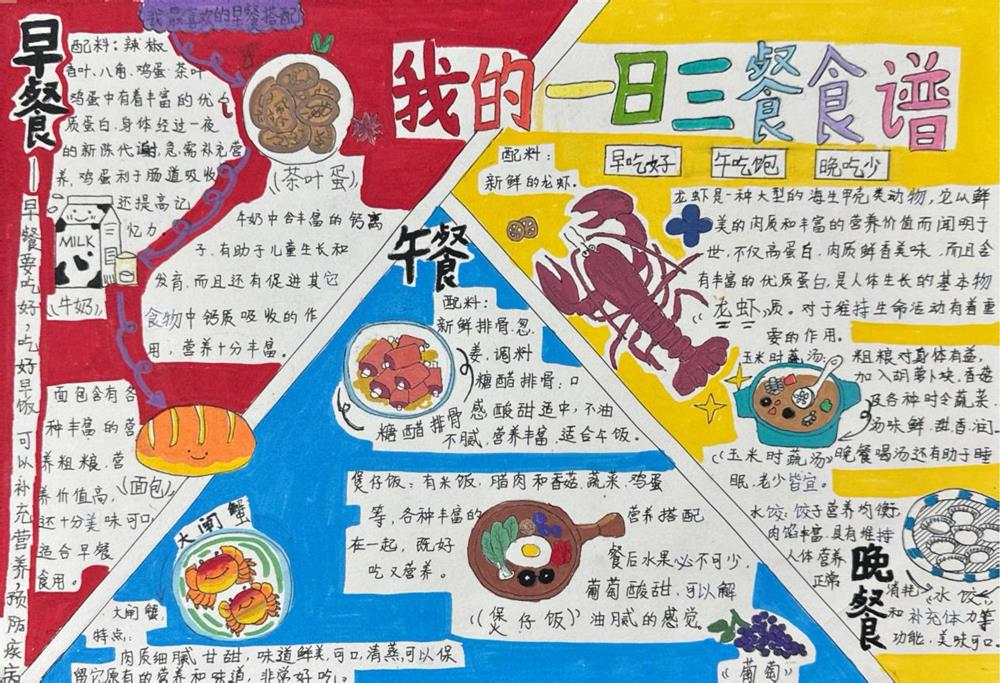 我的一日三餐食谱
早吃好
午吃饱
晚吃少
早餐
早餐要吃好,吃好早饭可以补充营养,预防疾病
我最喜欢的早餐搭配
配料:辣椒
香叶、八角、鸡蛋、茶叶
鸡蛋中有着丰富的优
质蛋白,身体经过一夜
的新陈代谢,急需补充营
养,鸡蛋利于肠道吸收
还提高记
忆力。
(茶叶蛋)
MILK
(牛奶)
牛奶中含丰富的钙离
子,有助于儿童生长和
发育,而且还有促进其它
食物中钙质吸收的作
用,营养十分丰富。
面包含有各
种丰富的营
养粗粮,营
养价值高,
还十分美味可口
适合早餐
食用。
(面包)
午餐
配料:
新鲜排骨、葱、
姜、调料
糖醋排骨:口
感酸甜适中,不油
不腻,营养丰富,适合午饭。
糖醋排骨
煲仔饭:有米饭,腊肉和香菇、蔬菜、鸡蛋
等,各种丰富的
营养搭配
在一起,既好
吃又营养。
(煲仔饭)
餐后水果必不可少,
葡萄酸甜,可以解
油腻的感觉。
(葡萄)
大闸蟹
大闸蟹
特点:
肉质细腻,甘甜,味道鲜美,可口,清蒸,可以保
留它原有的营养和味道,非常好吃。
配料:
新鲜的龙虾。
龙虾是一种大型的海生甲壳类动物,它以鲜
美的肉质和丰富的营养价值而闻明于
世,不仅高蛋白,肉质鲜香美味,而且含
有丰富的优质蛋白,是人体生长的基本物
质。对于维持生命活动有着重
要的作用。
(龙虾)
玉米时蔬汤
粗粮对身体有益,
加入胡萝卜块,香菇
及各种时令蔬菜,
汤味鲜,甜香,润
晚餐喝汤还有助于睡
眠,老少皆宜。
(玉米时蔬汤)
晚餐
水饺,饺子营养均衡,
肉馅丰富,具有维持
人体营养
正常
消耗
和补充体力等
功能,美味可口
(水饺)